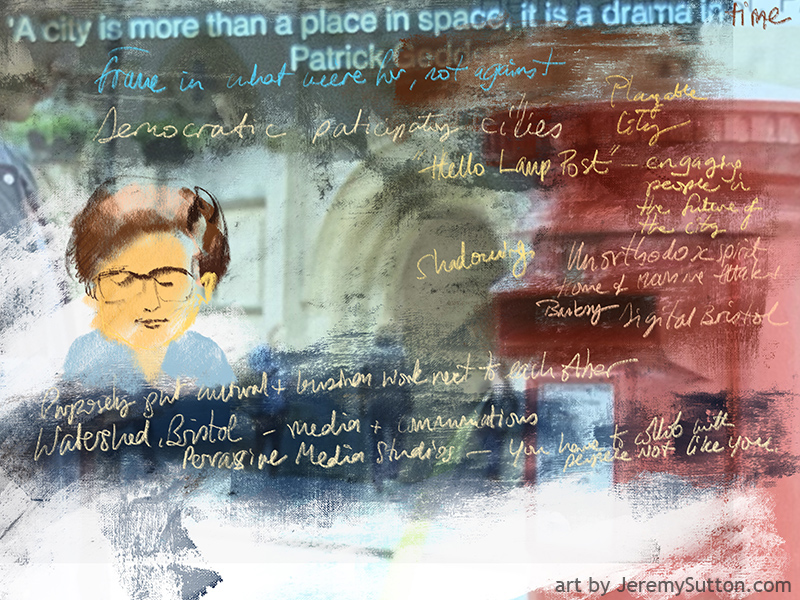 'A city is more than a place in space, it is a drama in time
Patrick Geddes
Frame in what we're for, not against
Democratic paticipating cities
Playable
City
"Hello Lamp Post" - engaging
people in
the future of
the city
Shadowing
Unorthodox spirit
Home of Massive Attack
Banksy Digital Bristol
Purposely put cultural + business work next to each other
Watershed, Bristol - media + communications
Pervasive Media Studios - you have to collab with
people not like you.
art by JeremySutton.com